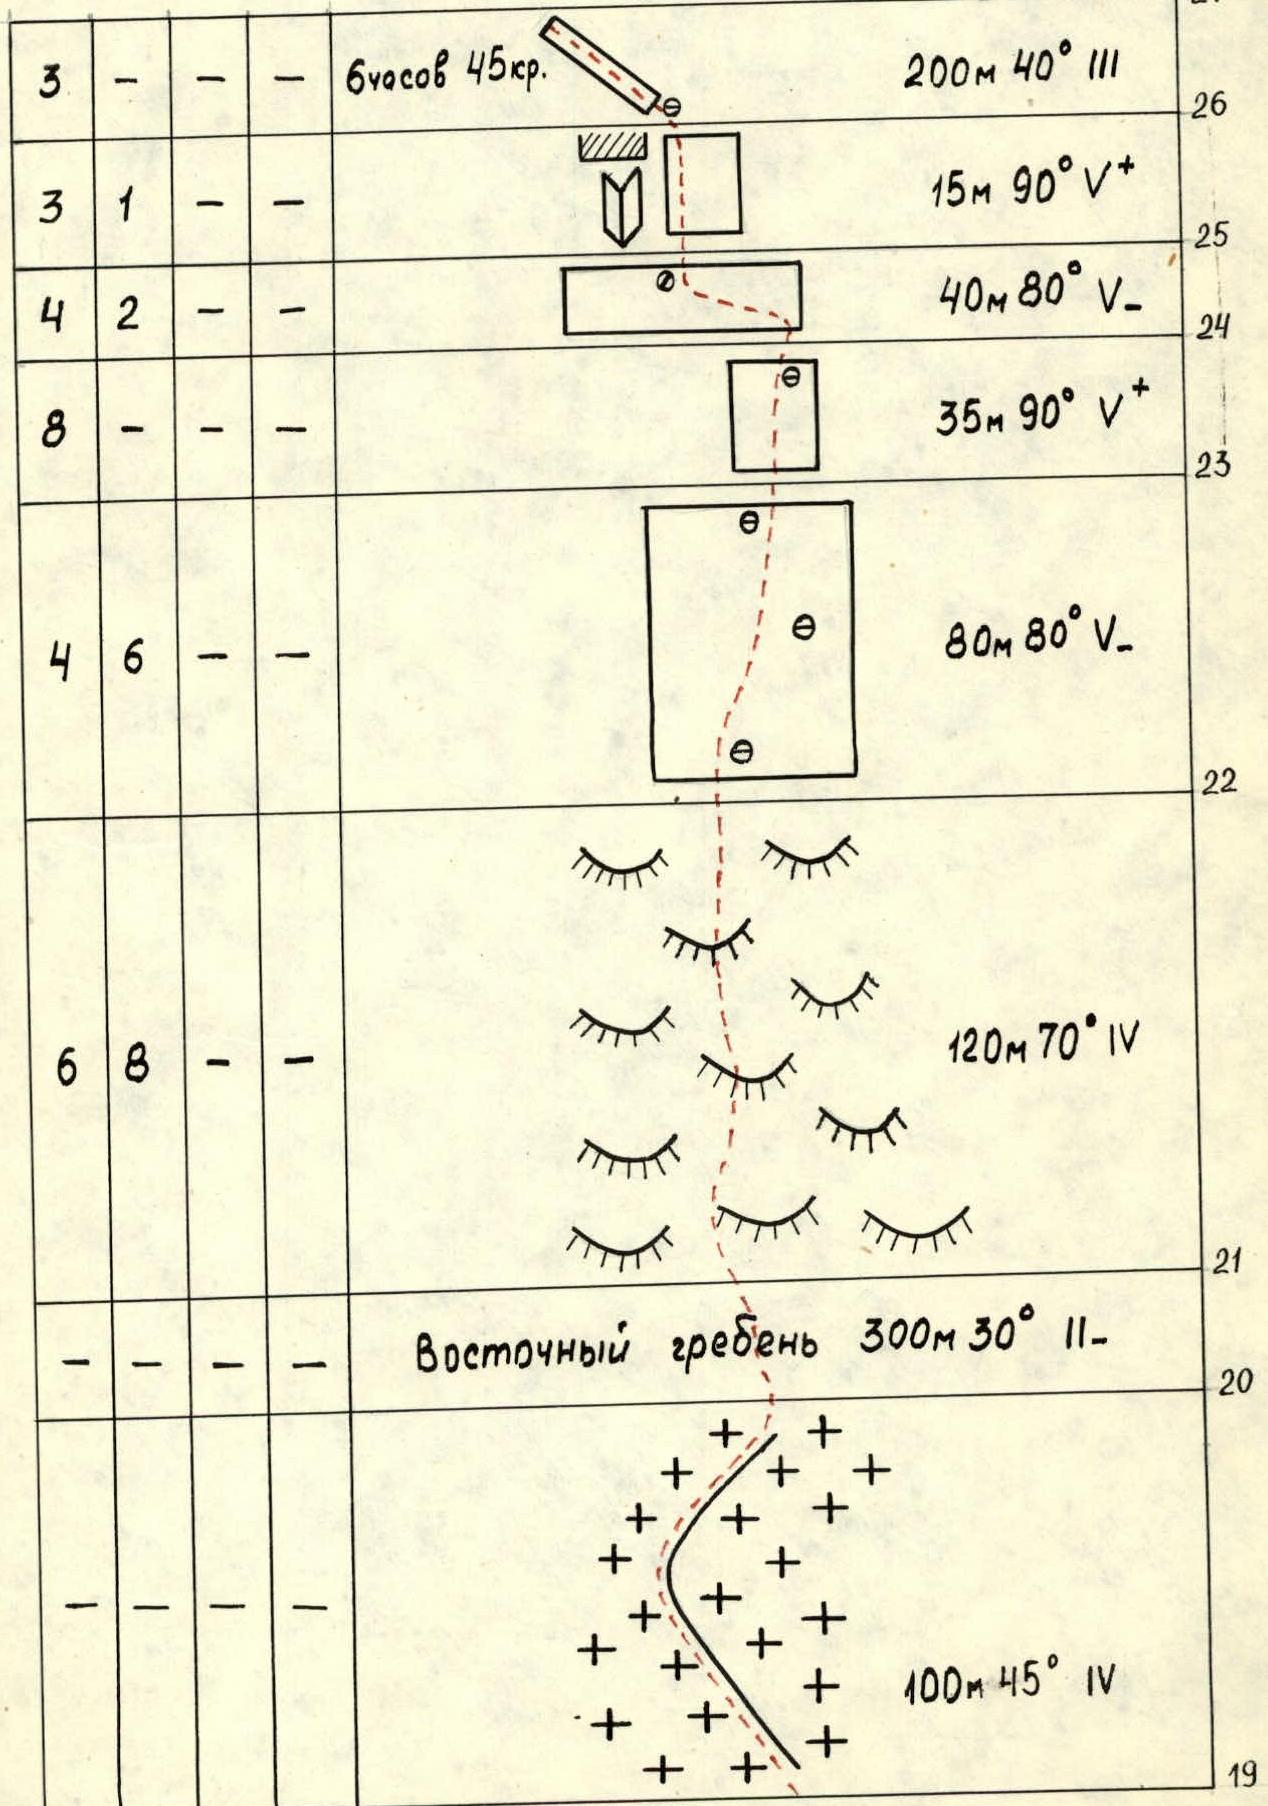 3 - - - 6часов 45кр. 200м 40° III
26
3 1 - - 15м 90° V+
25
4 2 - - 40м 80° V-
24
8 - - - 35м 90° V+
23
4 6 - - 80м 80° V-
22
6 8 - - 120м 70° IV
21
- - - - Восточный гребень 300м 30° II-
20
- - - - 100м 45° IV
19